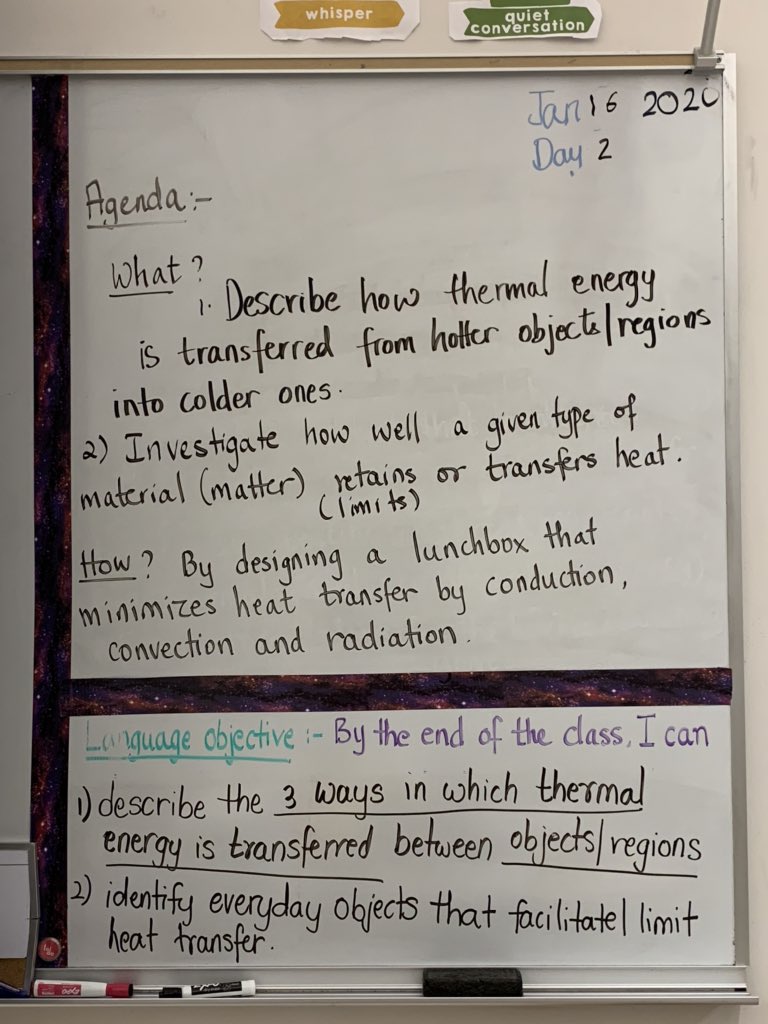 whisper
quiet
conversation
Jan 16 2020
Day 2
Agenda:-
What?
1. Describe how thermal energy
is transferred from hotter objects/regions
into colder ones.
2) Investigate how well a given type of
material (matter) retains or transfers heat.
(limits)
How? By designing a lunchbox that
minimizes heat transfer by conduction,
convection and radiation.
Language objective :- By the end of the class, I can
1) describe the 3 ways in which thermal
energy is transferred between objects/regions
2) identify everyday objects that facilitate/limit
heat transfer.
expo